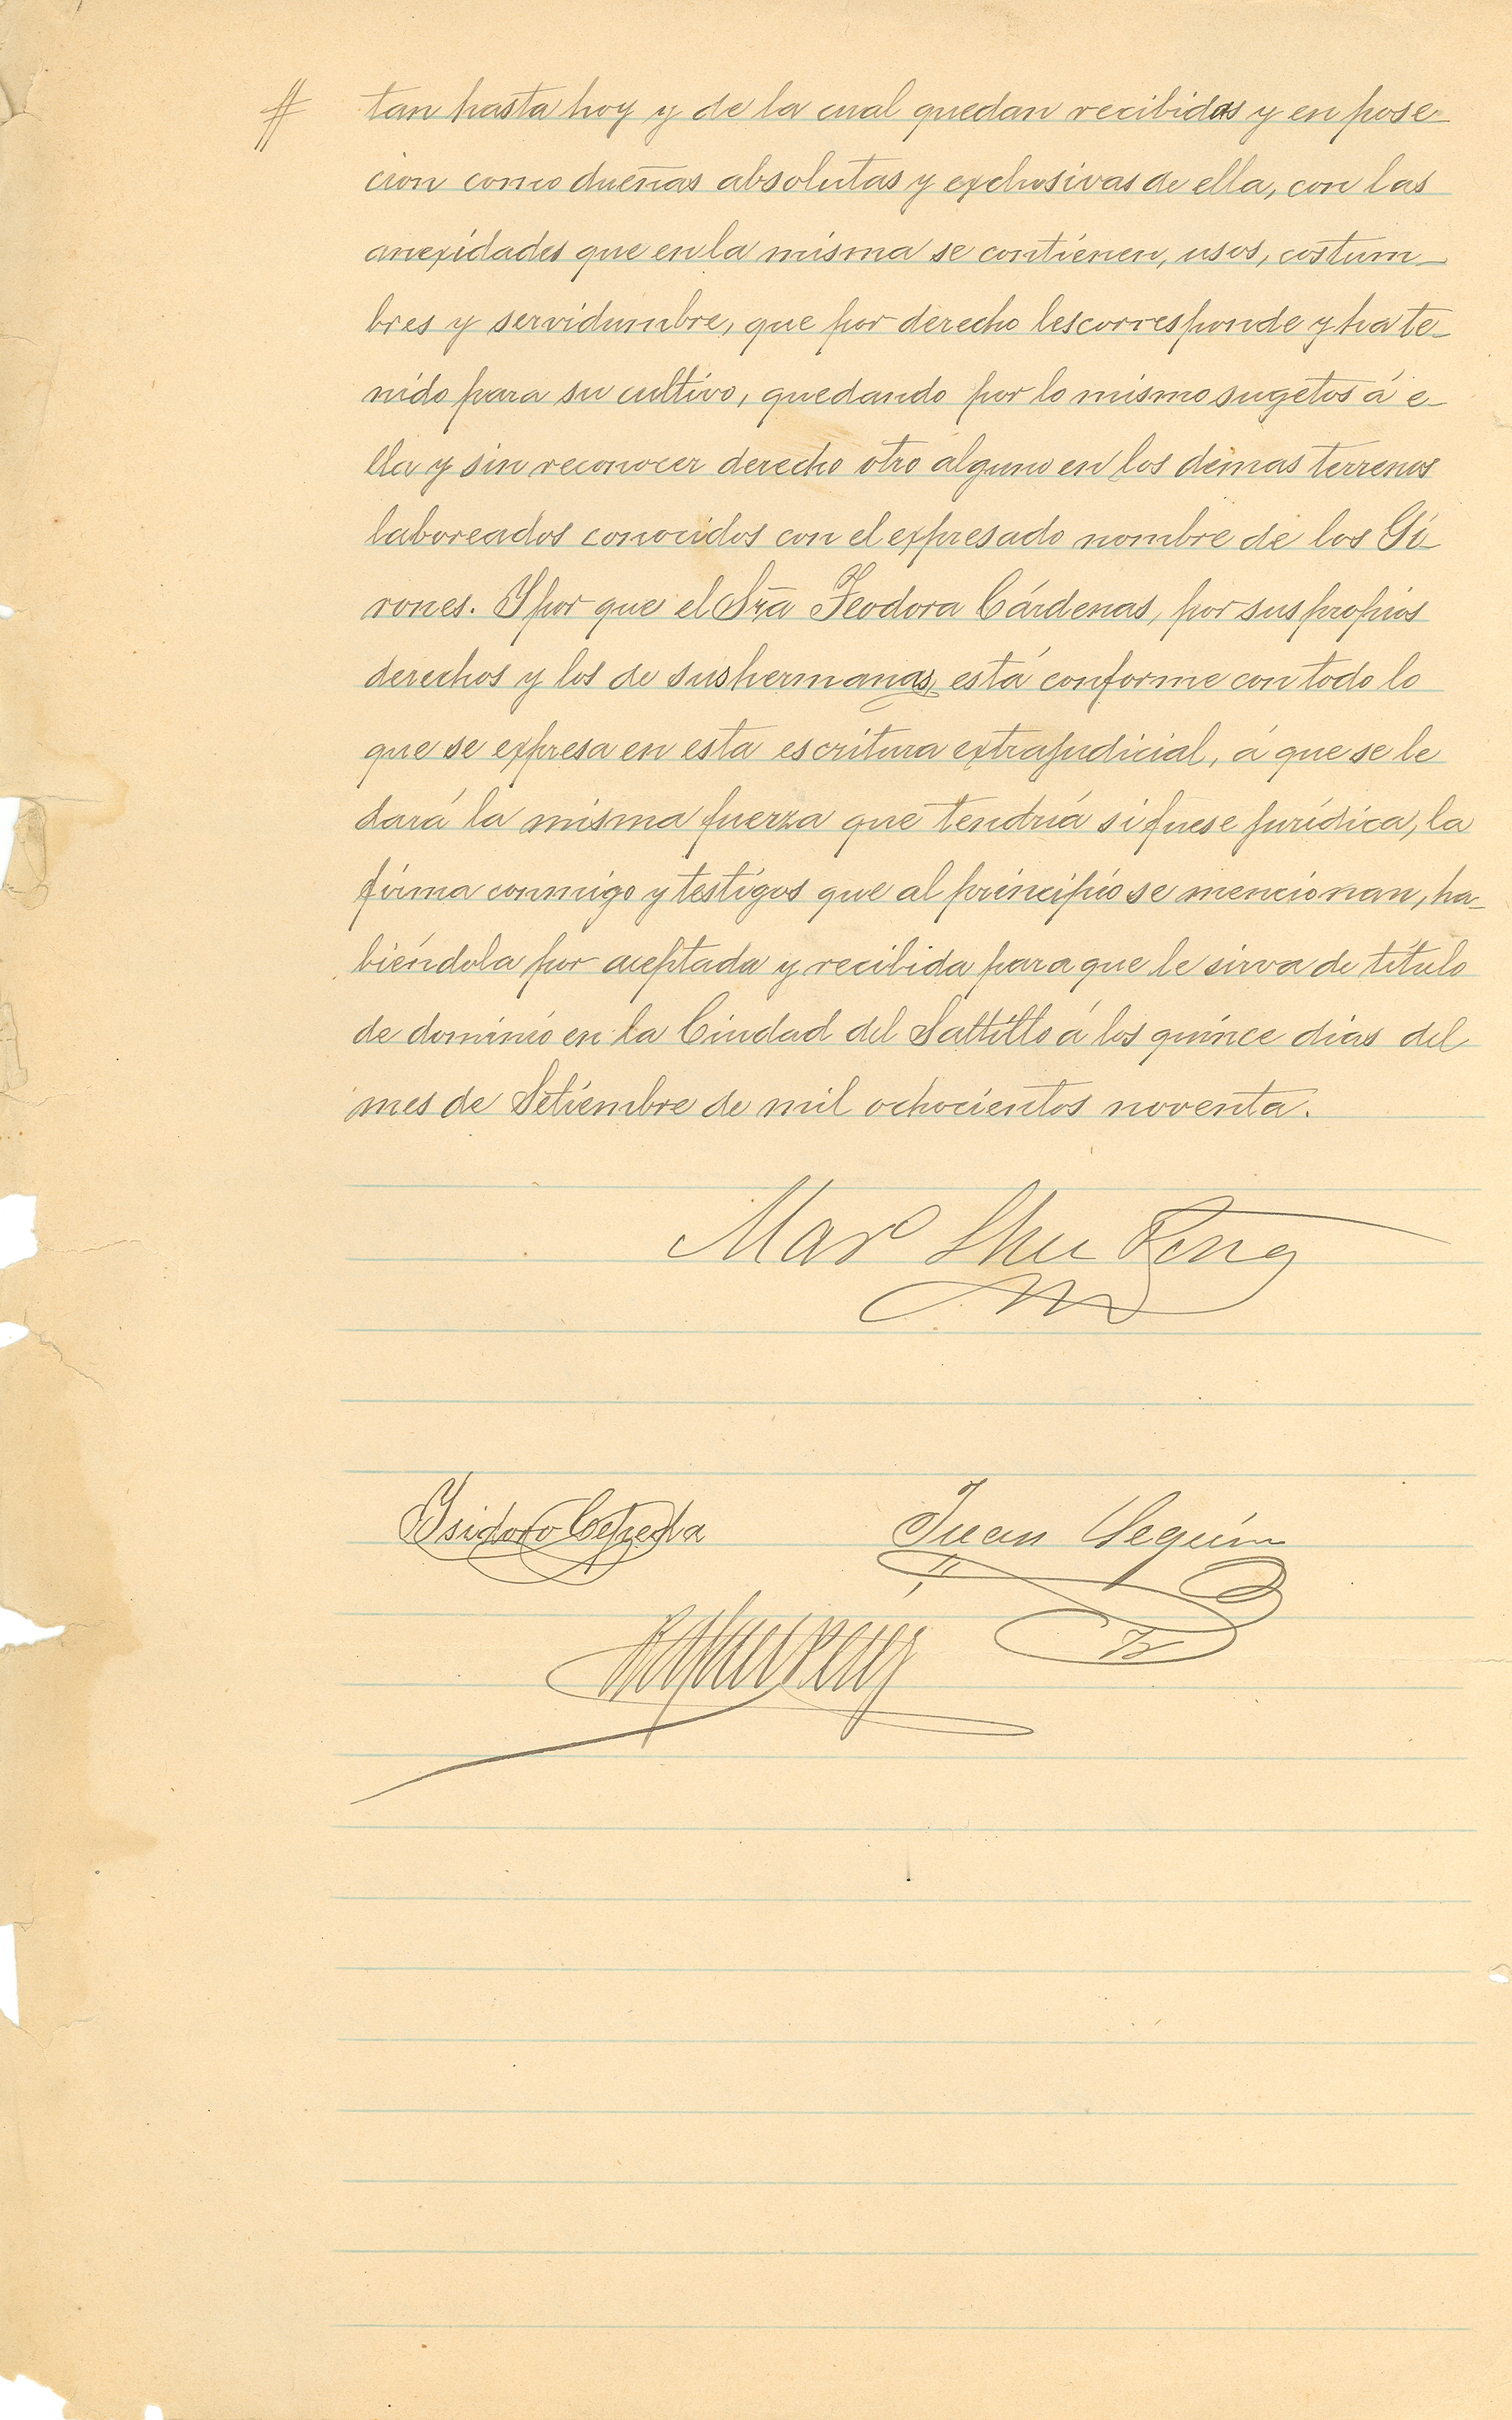 # tan hasta hoy y de la cual quedan recibidas y en pose-
cion como dueñas absolutas y exclusivas de ella, con las
anexidades que en la misma se contienen, usos, costum-
bres y servidumbre, que por derecho les corresponde y ha te-
nido para su cultivo, quedando por lo mismo sugetos á e-
lla y sin reconocer derecho otro alguno en los demas terrenos
laboreados conocidos con el expresado nombre de los Gi-
rones. Y por que el Sra̅ Teodora Cárdenas, por sus propios
derechos y los de sus hermanas, está conforme con todo lo
que se expresa en esta escritura extrajudicial, á que se le
dará la misma fuerza que tendria si fuese jurídica, la
firma conmigo y testigos que al principio se mencionan, ha-
biéndola por aceptada y recibida para que le sirva de titulo
de dominio en la Ciudad del Saltillo á los quince dias del
mes de Setiembre de mil ochocientos noventa.
Isidoro Cepeda Juan Seguin